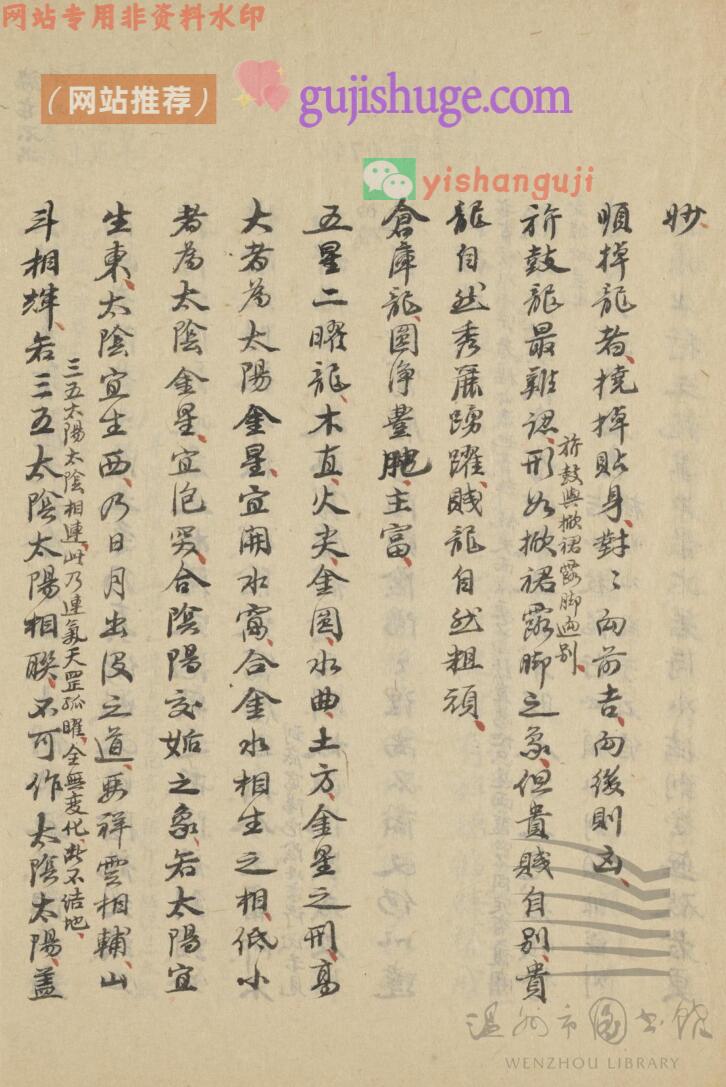 网站专用非资料水印
（网站推荐）
gujishuge.com
yishanguji
妙、
順掉龍者、撓掉貼身、對〻向前吉、向後則凶、
旂鼓龍最難認、形如掀裙露脚之象、但貴賤自別、貴
旂鼓與掀裙露脚迥別、
龍自然秀麗踴躍、賤龍自然粗頑、
倉庫龍、圓淨豊肥、主富、
五星二曜龍、木直、火尖、金圓、水曲、土方、金星之形、高
大者為太陽金星、宜開水窩、合金水相生之相、低小
者為太陰金星、宜泡突、合陰陽交姤之象、若太陽宜
生東、太陰宜生西、乃日月出没之道、要祥雲相輔、山
斗相輝、若三五太陰太陽相聯、不可作太陰太陽、蓋
三五太陽太陰相連、此乃連氣天罡孤曜、全無変化、断不结地、
温州市圖書館
WENZHOU LIBRARY